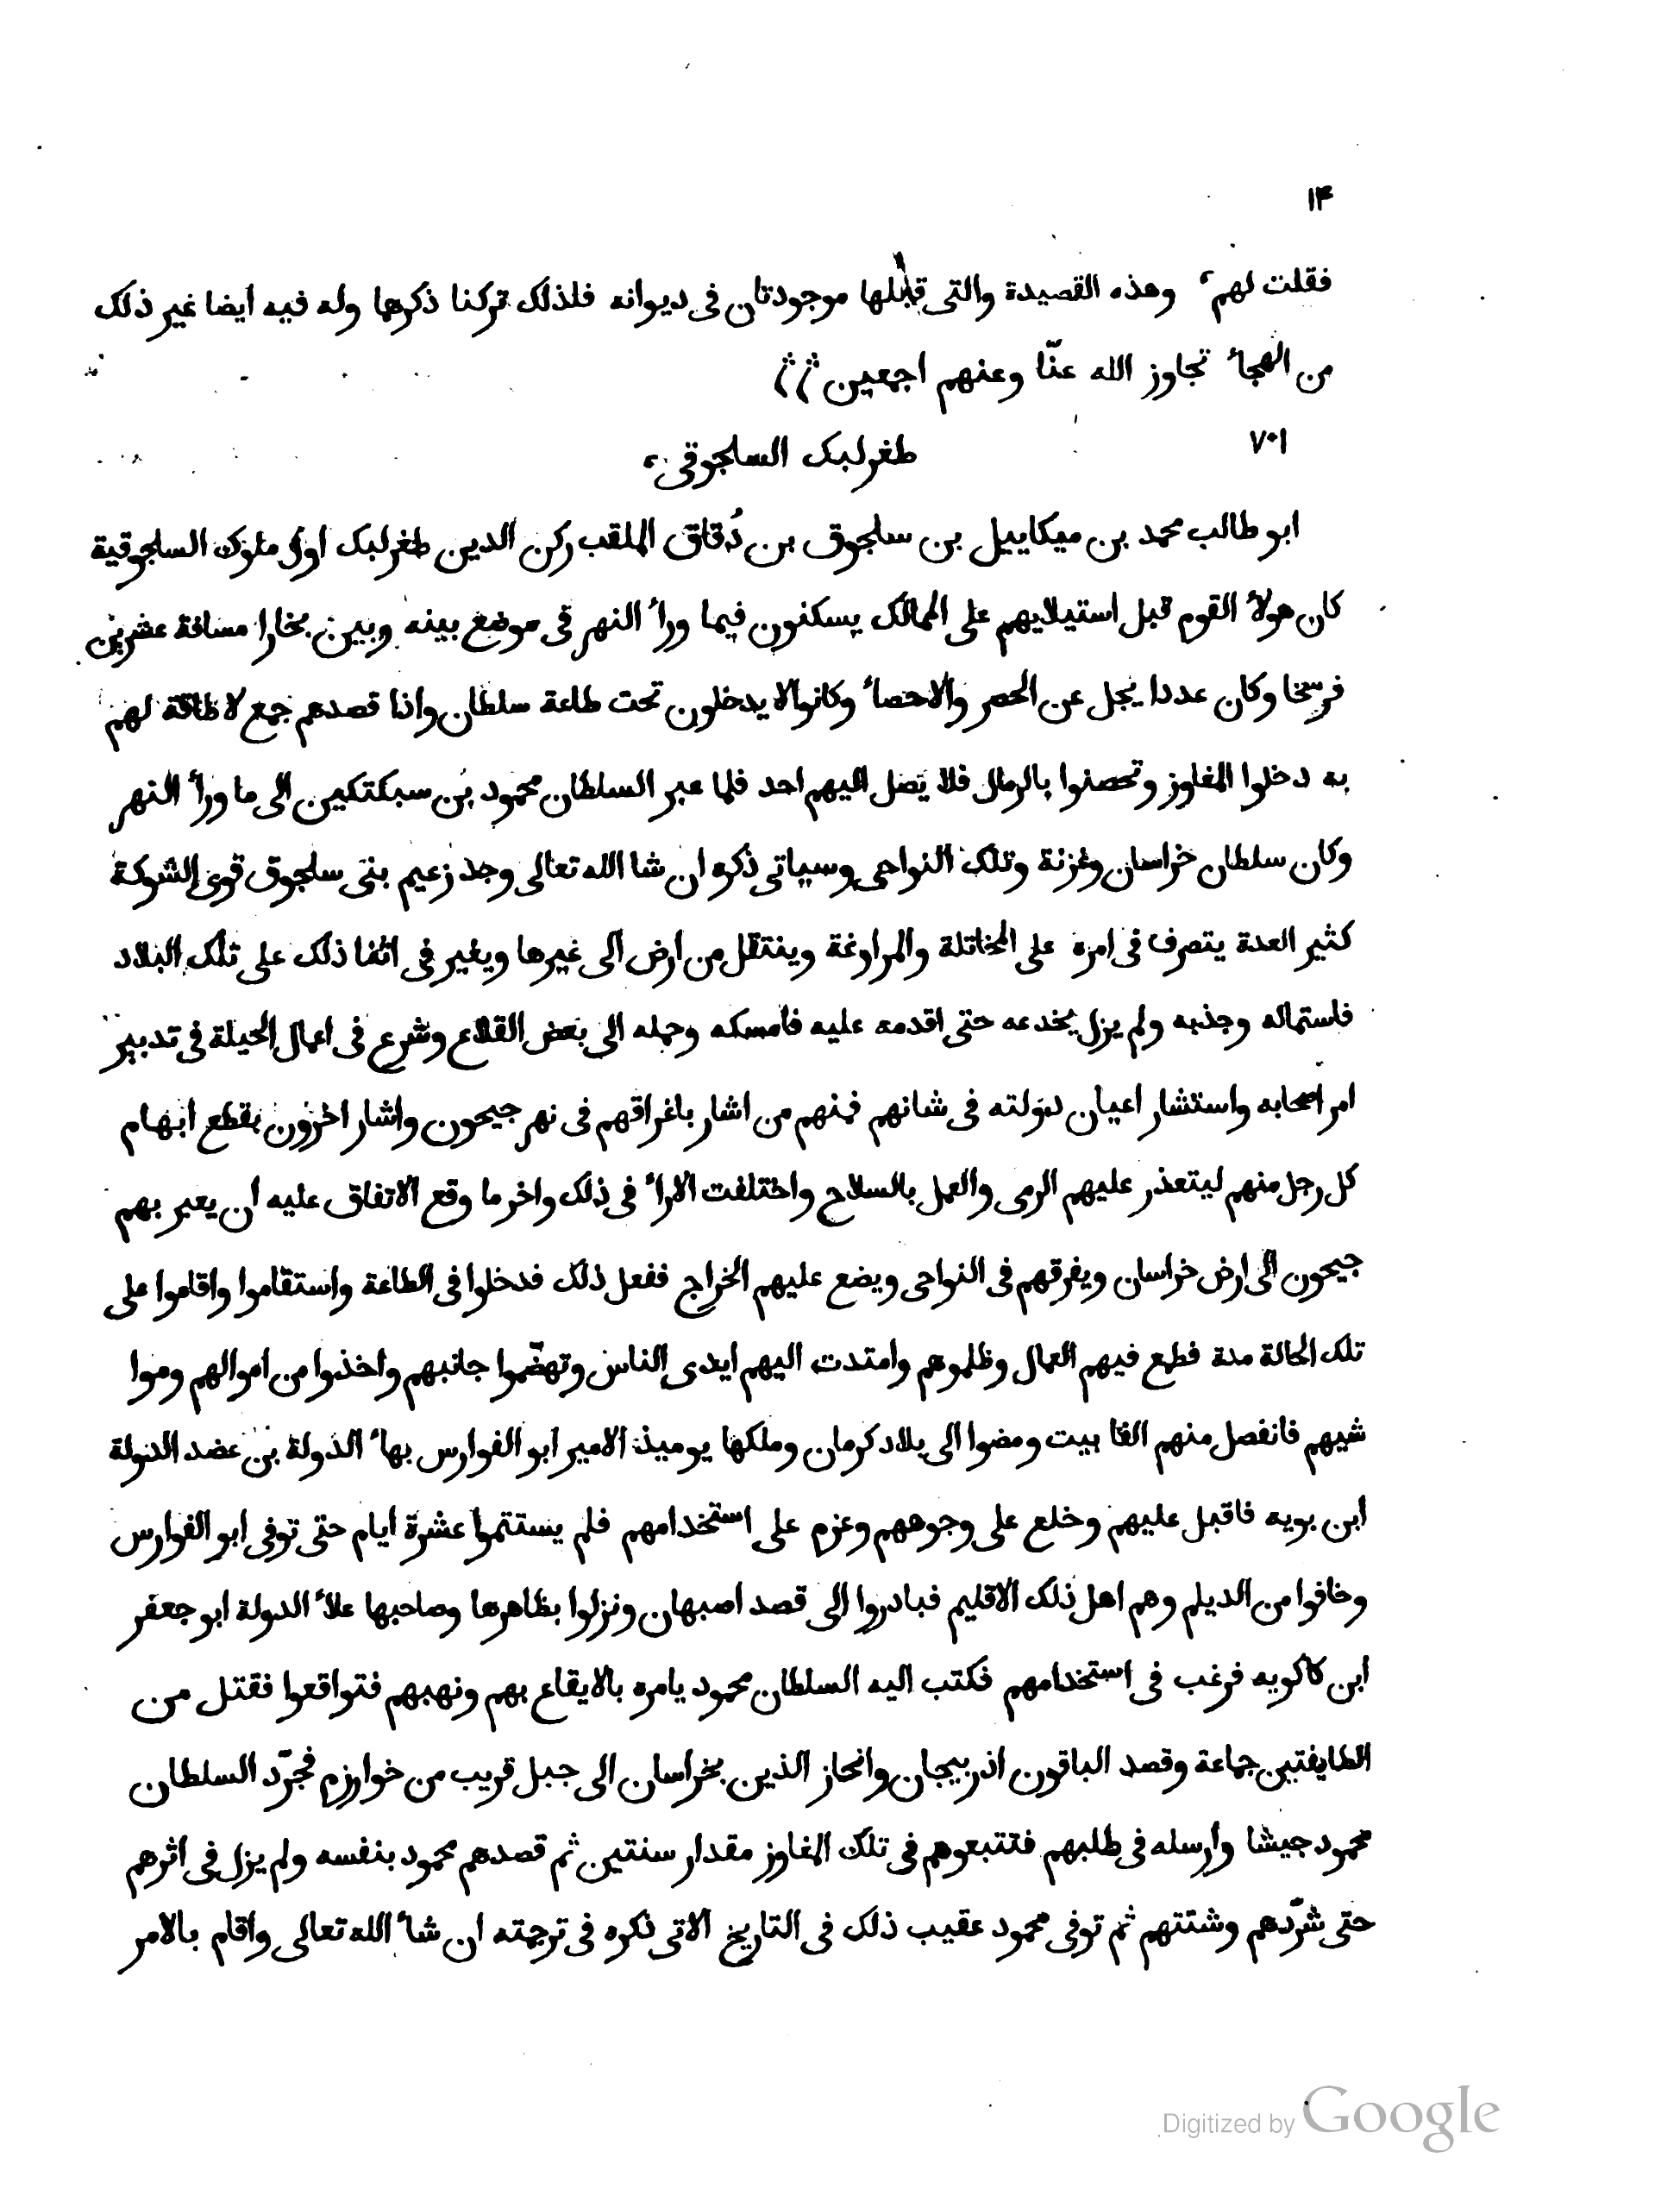 ١۴
فقلت لهم، وهذه القصيدة والتى قبلها موجودتان فى ديوانه فلذلك تركنا ذكرها وله فيه ايضا غير ذلك
من الهجأ تجاوز الله عنّا وعنهم اجمعين
٧٠١
طغرلبك السلجوقى،
ابو طالب محمد بن ميكاييل بن سلجوق بن دُقاق الملقب ركن الدين طغرلبك اول ملوك السلجوقية
كان هولأ القوم قبل استيلايهم على الممالك يسكنون فيما ورأ النهر فى موضع بينه وبين بخارا مسافة عشرين
فرسخا وكان عددا يجل عن الحصر والاحصأ وكانوا لا يدخلون تحت طاعة سلطان واذا قصدهم جمع لا طاقة لهم
به دخلوا المفاوز وتحصنوا بالرمال فلا يصل اليهم احد فلما عبر السلطان محمود بن سبكتكين الى ما ورأ النهر
وكان سلطان خراسان وغزنة وتلك النواحى وسياتى ذكره ان شا الله تعالى وجد زعيم بنى سلجوق قوى الشوكة
كثير العدة يتصرف فى امره على المخاتلة والمراوغة وينتقل من ارض الى غيرها ويغير فى اثنا ذلك على تلك البلاد
فاستماله وجذبه ولم يزل يخدعه حتى اقدمه عليه فامسكه وحمله الى بعض القلاع وشرع فى اعمال الحيلة فى تدبير
امر اصحابه واستشار اعيان دولته فى شانهم فمنهم من اشار باغراقهم فى نهر جيحون واشار اخرون بقطع ابهام
كل رجل منهم ليتعذر عليهم الرمى والعمل بالسلاح واختلفت الارأ فى ذلك واخر ما وقع الاتفاق عليه ان يعبر بهم
جيحون الى ارض خراسان ويفرقهم فى النواحى ويضع عليهم الخراج ففعل ذلك فدخلوا فى الطاعة واستقاموا واقاموا على
تلك الحالة مدة فطمع فيهم العمال وظلموهم وامتدت اليهم ايدى الناس وتهضّموا جانبهم واخذوا من اموالهم وموا
شيهم فانفصل منهم الفا بيت ومضوا الى بلاد كرمان وملكها يوميذ الامير ابو الفوارس بهأ الدولة بن عضد الدولة
ابن بويه فاقبل عليهم وخلع على وجوههم وعزم على استخدامهم فلم يستتموا عشرة ايام حتى توفى ابو الفوارس
وخافوا من الديلم وهم اهل ذلك الاقليم فبادروا الى قصد اصبهان ونزلوا بظاهرها وصاحبها علأ الدولة ابو جعفر
ابن كاكويه فرغب فى استخدامهم فكتب اليه السلطان محمود يامره بالايقاع بهم ونهبهم فتواقعوا فقتل من
الطايفتين جماعة وقصد الباقون اذربيجان وانحاز الذين بخراسان الى جبل قريب من خوارزم فجرّد السلطان
محمود جيشا وارسله فى طلبهم فتتبعوهم فى تلك المفاوز مقدار سنتين ثم قصدهم محمود بنفسه ولم يزل فى اثرهم
حتى شرّدهم وشتتهم ثم توفى محمود عقيب ذلك فى التاريخ الاتى ذكره فى ترجمته ان شأ الله تعالى واقام بالامر
Digitized by Google